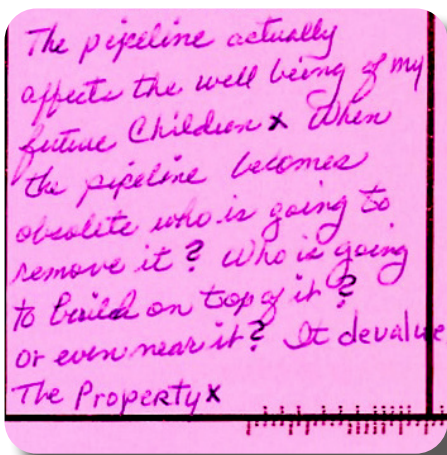 The pipeline actually
affects the well being of my
future Children x When
the pipeline becomes
obsolete who is going to
remove it? Who is going
to build on top of it?
or even near it? It devalue
The Property x